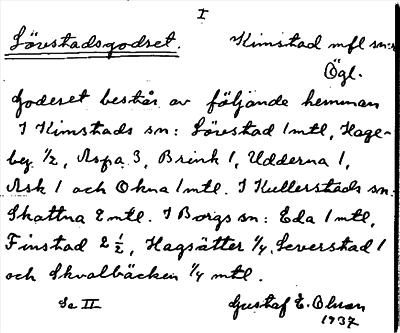 I
Lövestadsgodset. Kimstad mfl sn:r
Ögl.
Godeset består av följande hemman
I Kimstads sn: Lövestad 1 mtl, Hage-
beg. 1/2, Aspa 3, Brink 1, Udderna 1,
Ask 1 och Okna 1 mtl. I Kullerstads sn:
Skattna 2 mtl. I Borgs sn: Eda 1 mtl,
Finstad 2 1/2, Hagsätter 1/4, Leverstad 1
och Skvalbäcken 1/4 mtl.
Se II Gustaf E. Olsson
1937